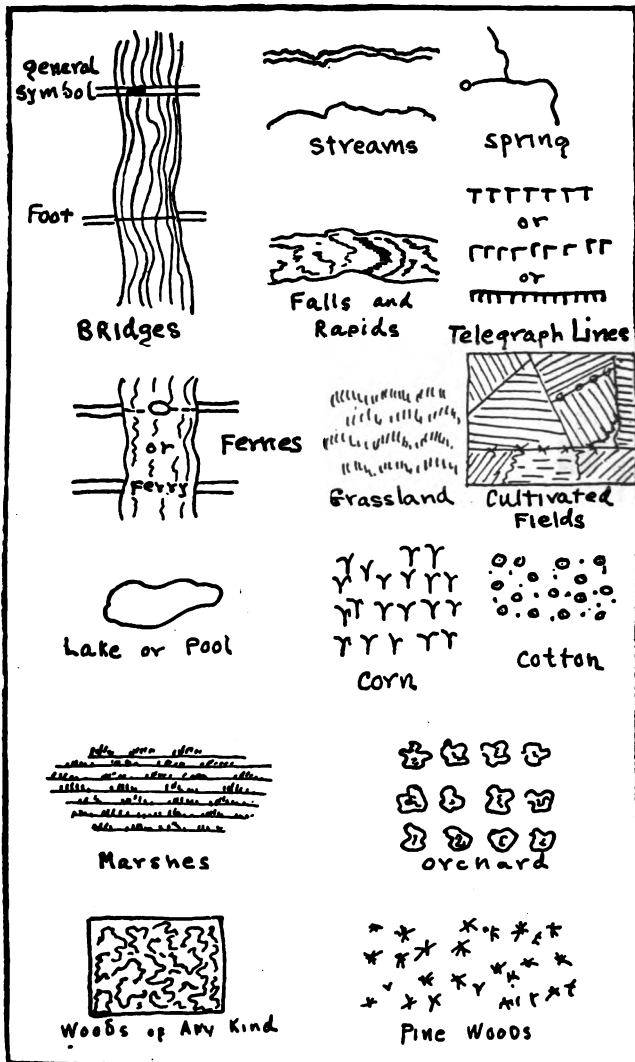 general
symbol
Foot
BRIdges
streams
spring
Falls and
Rapids
or
or
Telegraph Lines
or
Ferry
Ferries
Grassland
Cultivated
Fields
Lake or Pool
Corn
Cotton
Marshes
orchard
Woods of Any Kind
Pine Woods